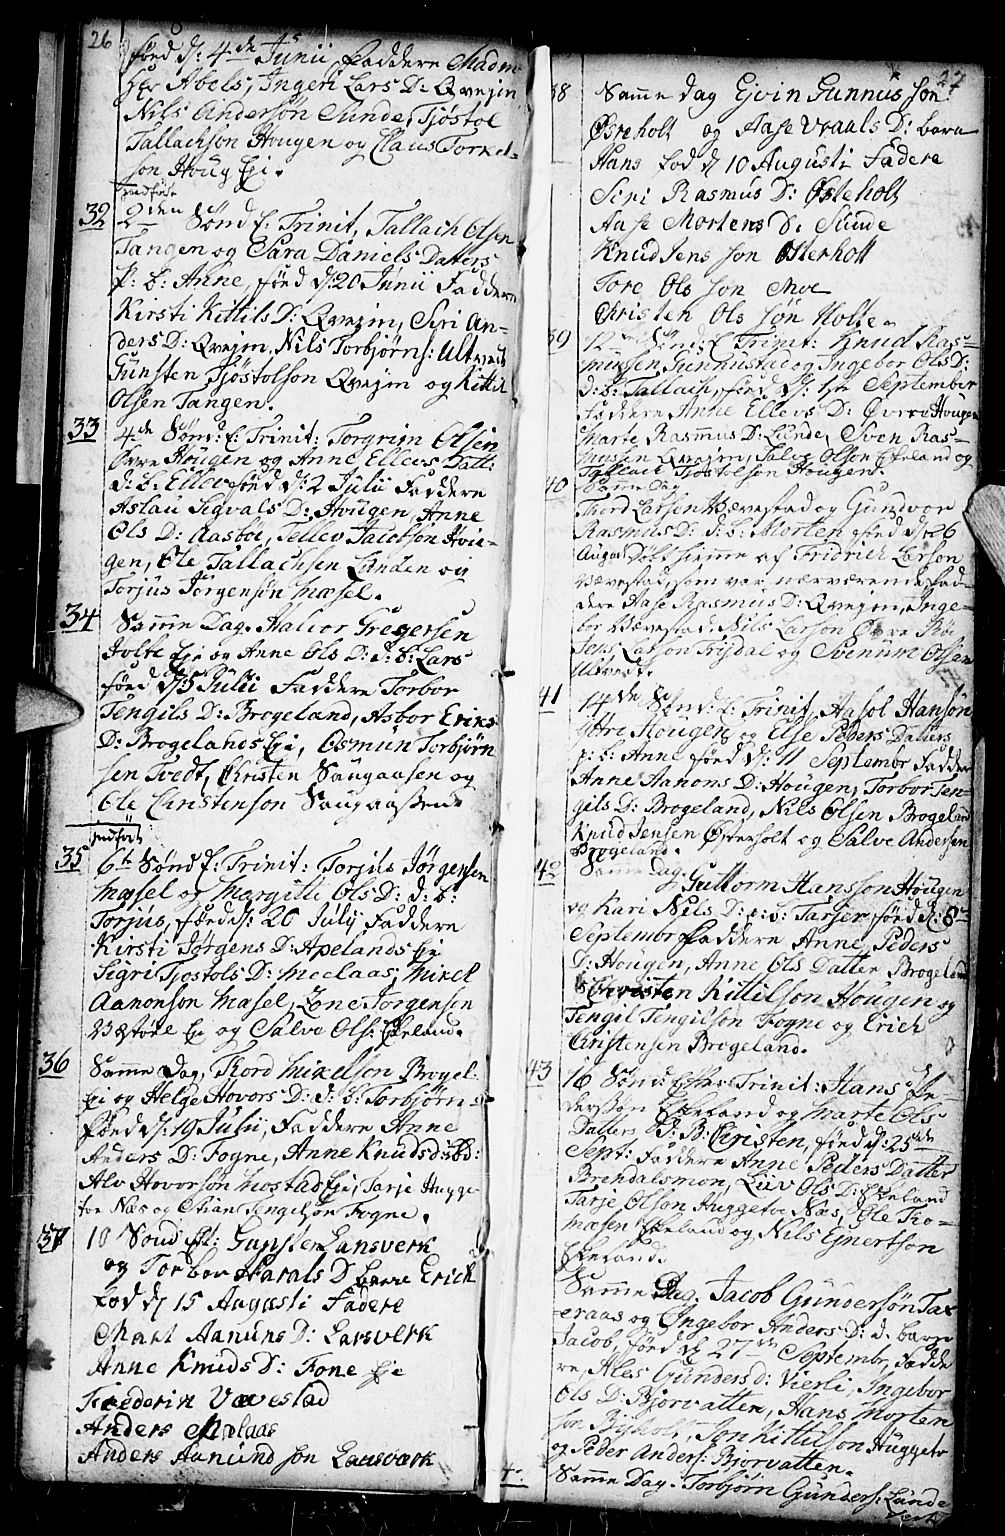 26
fōed d: 4de Junii, Faddere Madm
Abels, Ingeri Lars D: Qvejm
Nils Andersøn Sunde, Tjøstol
Tallachson Hougen og Claus Torkel-
son Houg Eje.
indført
32
2den Sønd E. Trinit, Tallach Olsen
Tangen og Sara Daniels Datters
p: b: Anne, føed d: 20 Junii Faddere
Kirsti Kittils D: Qvejm, Siri An-
ders D: Qvejm, Nils Torbjørns: Ultvedt
Gunsten Tjøstolson Qvejm og Kittil
Olsen Tangen.
33
4de Sønd: E: Trinit: Torgrim Olsen
Øvre Hougen og Anne Ellevs Datt:
d: b: Ellev føed d: 2 Julii Faddere
Aslau Sigvals D: Hougen, Anne
Ols D: Aasbøe, Tellev Jacobson Hou-
gen, Ole Tallachsen Lunden og
Torjus Jørgensøn Mæsel.
34
Samme Dag. Halvor Gregersen
Holte Eje og Anne Ols D: d: b: Lars
føed d: 5 Julii Faddere Torbor
Tengils D: Brogeland, Asbor Eriks
D: Brogelands Eje, Osmun Torbjørn
sen Tvedt, Christen Saugaasen og
Ole Christenson Saugaasen
indført
35
6te Sønd E: Trinit: Torjus Jørgensen
Mæsel og Margitte Ols D: d: b:
Torjus, føed d: 20 Julij Faddere
Kirsti Jørgens D: Apelands Eje
Sigri Tjostols D: Moelaas, Mikel
Aamonson Mæsel, Lone Jørgensen
Eje og Salve Ols: Eikeland.
36
Samme Dag, Thord Mikelson Brogel-
Eje og Helge Hovors D: d: b: Torbjørn
føed d: 19 Julii, Faddere Anne
Anders D: Fogne, Anne Knuds D:
Alv Hovorson Mostad Eje, Tarje Hugge-
toe Næs og Stian Tengelson Fogne.
37
10 Sønd Eft: Gunsten Lansverk
og Torbor Haralds D barn Erick
Fød d 15 Augusti Fadere
Mari Aanuns D: Lansverk
Anne Knuds D: Fone Eje
Friederin Vævestad
Anders Mælaas
Anders Aanund son Lansverk
27
38
Samme dag Ejvin Gunnus son
Østeholt og Aase Vraals D: barn
Hans fød d 10 Augusti Fadere
Siri Rasmus D: Østeholt
Aase Mortens D: Sunde
Knud Jens son Østerholt
Tore Ols son Moe
Christen Ols søn Holte
39
12te Sønd: E Trinit: Knud Ras-
musen Gunnustad og Ingebor Ols D:
d: b: Tallach, føed d: 1te September
Faddere Anne Ellevs D: Øvre Hougen
Marte Rasmus D: Lunde, Sven Ras-
musen Qvejm, Salve Olson Eikeland og
Tallach Tjostolson Hougen.
40
Samme Dag
Thord Larsen Vævestad og Gundvor
Rasmus D: d: b: Morten føed d: 26
August Døbt hiemme af Fridrich Larson
Vævestad, som var nærværende Fad-
dere Aase Rasmus D: Qvejm, Inge-
bor Vævestad, Nils Larson Øvre Røe
Jens Larson Trisdal og Svenum Olsen
Ultvedt.
41
14de Sønd: E: Trinit, Aasol Hansøn
Ytre Hougen og Else Peders Datters
p: b: Anne føed d: 11 Septembr Faddere
Anne Aanons D: Hougen, Torbor Ten-
gils D: Brogeland, Nils Olsen Brogeland
Knud Jensen Østerholt og Salve Andersen
Brogeland.
42
Samme Dag: Guttorm Hansson Hougen
og Kari Nils D: d: b: Tarjer, føed d: 8de
Septembr Faddere Anne Peders
D: Hougen, Anne Ols Datter Brogeland
Christen Kittilson Hougen og
Tengil Tengilson Fogne og Erich
Christensen Brogeland.
43
16 Sønd: Efter Trinit: Hans Pe-
dersøn Eikeland og Marte Ols
Datters D: B: Christen, føed d: 25de
Sept: Faddere Anne Peders Datter
Brendalsmoen, Liv Ols D: Eikeland
Tarje Olsøn Huggetoe Næs, Ole Tho-
masen Eikeland og Nils Ejnertson
Eikeland.
Samme Dag. Jacob Gundersøn Tax-
eraas og Ingebor Anders D: d. barn
Jacob, føed d 27de Septembr, Fadde
re, Ales Gunders d: Vierli, Ingebor
Ols D: Bjorvatten, Hans Morten
son Bjyholt, Jon Kittilson Huggetoe
og Peder Anders: Bjorvatten.
4
Samme Dag. Torbjørn Gunders: Lunde